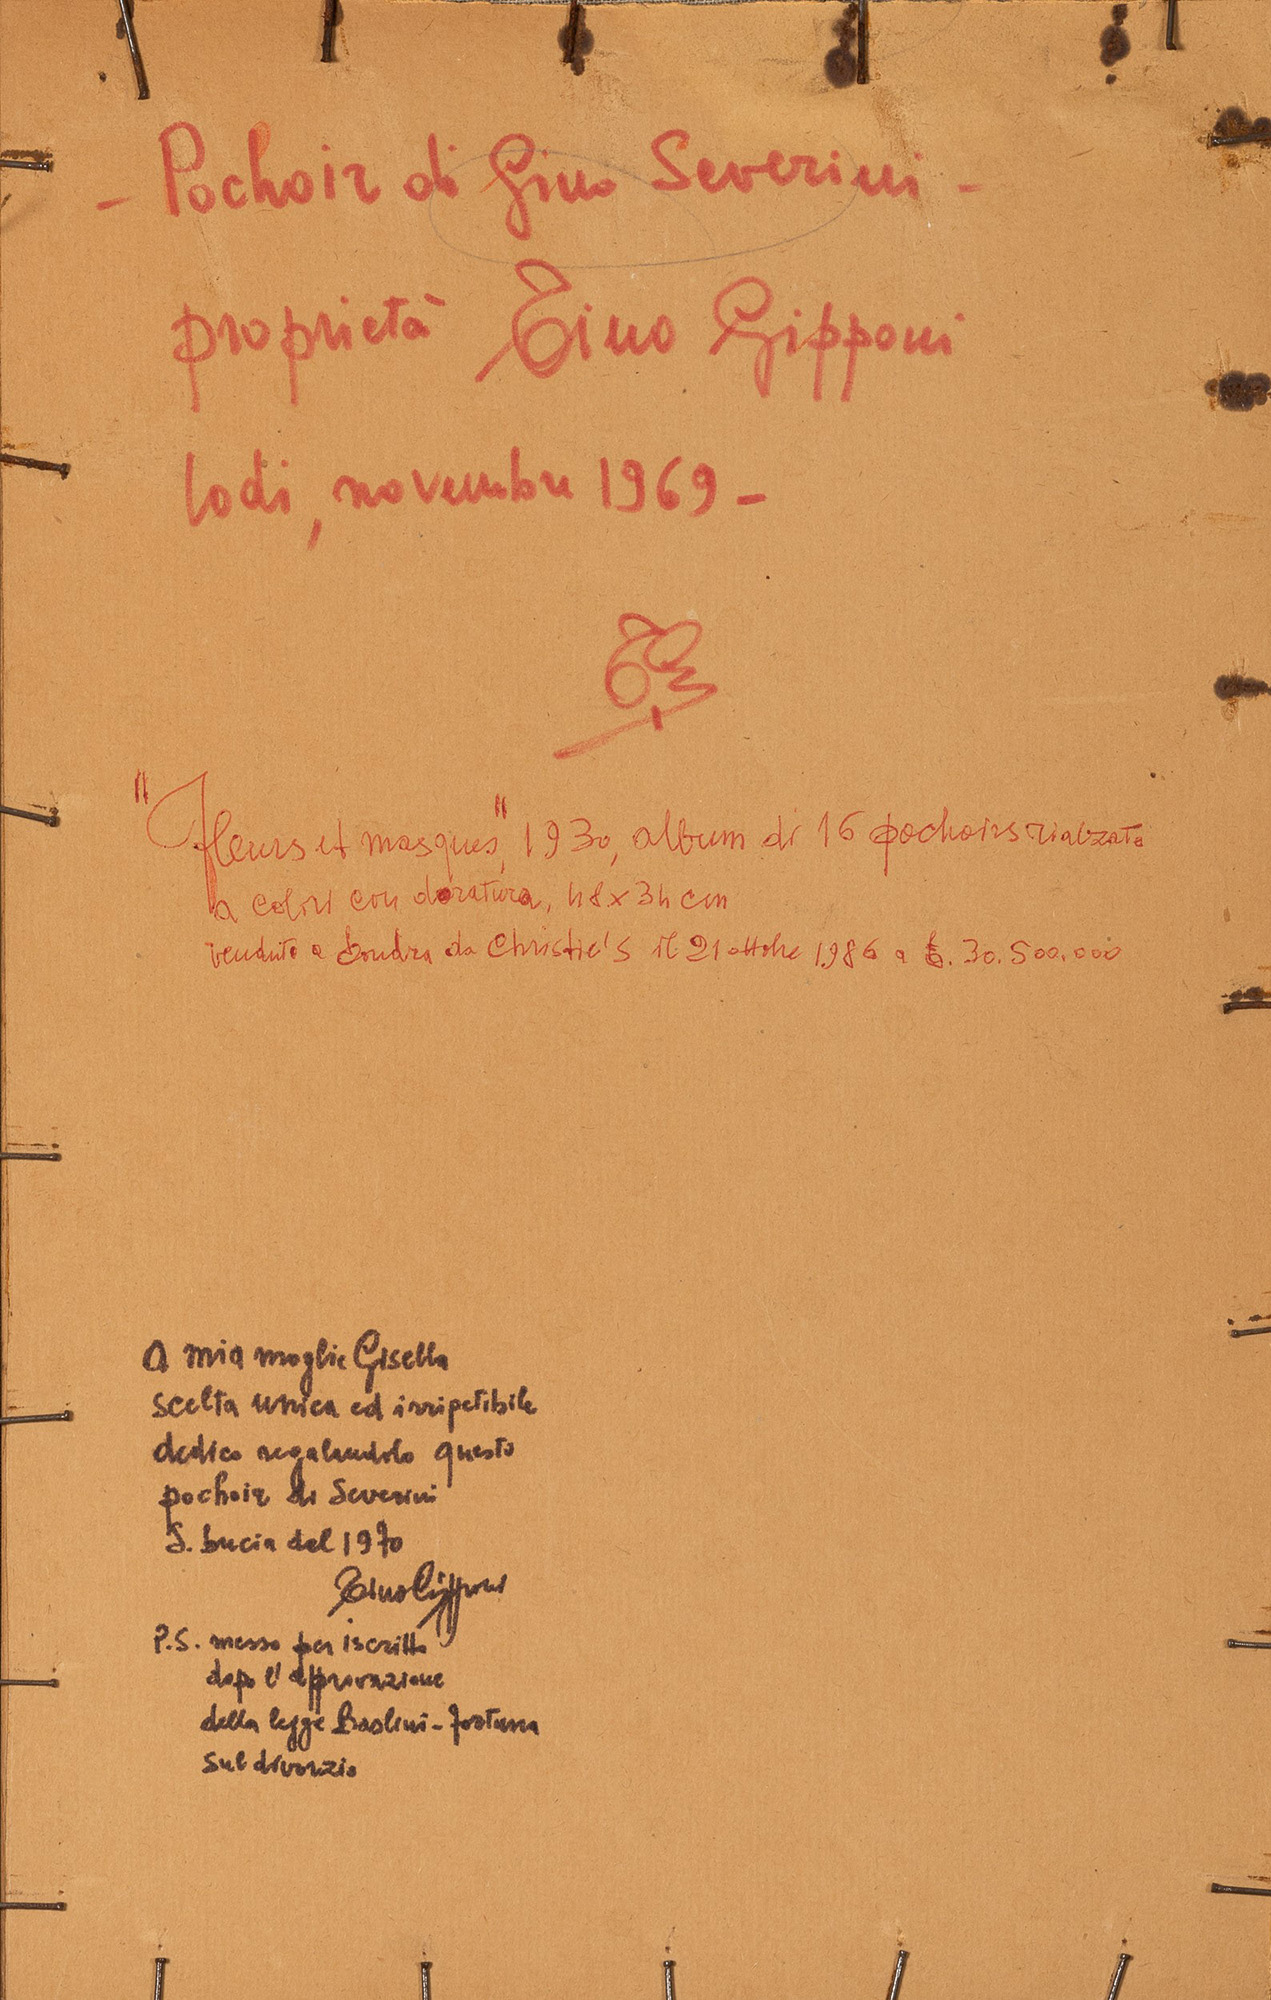 - Pochoir di Gino Severini -
proprietà Tino Gipponi
lodi, novembre 1969 -
"Fleurs et masques", 1930, album di 16 pochoirs rialzato
a colori con doratura, 48x34 cm
venduto a Londra da Christie's il 21 ottobre 1986 a £. 30.500.000
A mia moglie Gisella
scelta unica ed irripetibile
dedico regalandolo questo
pochoir di Severini
S. Lucia del 1970
Tino Gipponi
P.S. messo per iscritto
dopo l'approvazione
della legge Baslini-Fortuna
sul divorzio